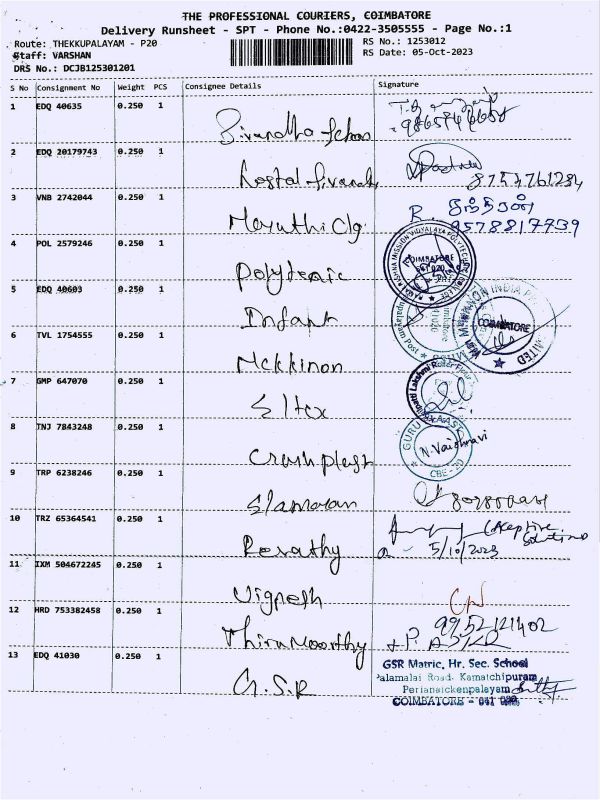 THE PROFESSIONAL COURIERS, COIMBATORE
Delivery Runsheet - SPT - Phone No.:0422-3505555 - Page No.:1
Route: THEKKUPALAYAM - P20
RS No.: 1253012
Staff: VARSHAN
RS Date: 05-Oct-2023
DRS No.: DCJB125301201
S No Consignment No Weight PCS Consignee Details Signature
1 EDQ 40635 0.250 1
2 EDQ 20179743 0.250 1
8757761234
3 VNB 2742044 0.250 1 Maruthi Clg
R. சுந்திரன்
9578817739
4 POL 2579246 0.250 1 Polytecnic
COIMBATORE
641 020
5 EDQ 40603 0.250 1 Infant
COIMBATORE
6 TVL 1754555 0.250 1 Mckkinon
7 GMP 647070 0.250 1 Eltex
8 TNJ 7843248 0.250 1 Crashplast
GURU
N. Vaishnavi
CBE - 20
9 TRP 6238246 0.250 1 Elamaran
10 TRZ 65364541 0.250 1 Revathy
5/10/2023
11 IXM 504672245 0.250 1 Vignesh
12 HRD 753382458 0.250 1 Thirumoorthy
9952121402
13 EDQ 41030 0.250 1 G.S.R
GSR Matric. Hr. Sec. School
Palamalai Road, Kamatchipuram
Perianaickenpalayam
COIMBATORE - 641 020